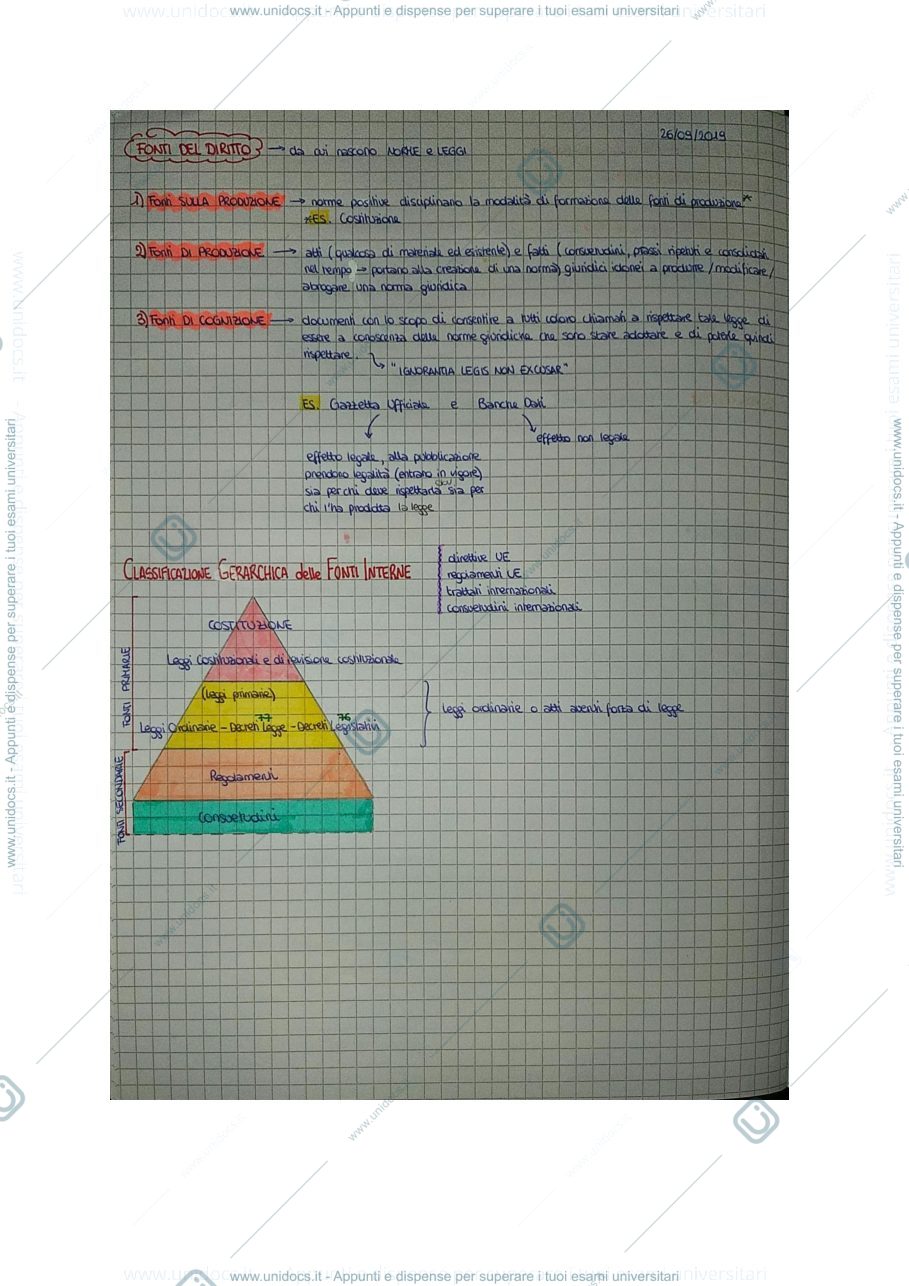 www.unidocs.it - Appunti e dispense per superare i tuoi esami universitari
26/09/2019
FONTI DEL DIRITTO → da cui nascono NORME e LEGGI
1) Fonti SULLA PRODUZIONE → norme positive disciplinano la modalità di formazione delle fonti di produzione*
*ES. Costituzione
2) Fonti DI PRODUZIONE → atti (qualcosa di materiale ed esistente) e fatti (consuetudini, prassi ripetuti e consolidati
nel tempo → portano alla creazione di una norma) giuridici idonei a produrre /modificare/
abrogare una norma giuridica
3) Fonti DI COGNIZIONE → documenti con lo scopo di consentire a tutti coloro chiamati a rispettare tale legge di
essere a conoscenza delle norme giuridiche che sono state adottate e di poterle quindi
rispettare.
"IGNORANTIA LEGIS NON EXCUSAT"
ES. Gazzetta Ufficiale e Banche Dati
effetto non legale
effetto legale, alla pubblicazione
prendono legalità (entrano in vigore)
sia per chi deve rispettarla sia per
chi l'ha prodotta la legge
CLASSIFICAZIONE GERARCHICA delle FONTI INTERNE
direttive UE
regolamenti UE
trattati internazionali
consuetudini internazionali
COSTITUZIONE
Leggi Costituzionali e di revisione costituzionale
(leggi primarie)
77 76
Leggi Ordinarie - Decreti Legge - Decreti Legislativi
leggi ordinarie o atti aventi forza di legge
Regolamenti
Consuetudini
FONTI PRIMARIE
FONTI SECONDARIE
www.unidocs.it - Appunti e dispense per superare i tuoi esami universitari
www.unidocs.it - Appunti e dispense per superare i tuoi esami universitari
www.unidocs.it - Appunti e dispense per superare i tuoi esami universitari